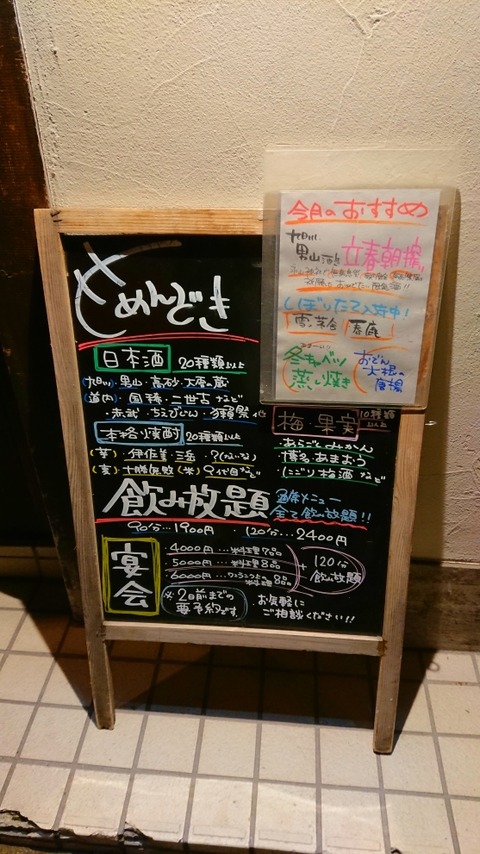 今月のおすすめ
旭川
男山酒造
立春朝搾
しぼりたて入荷中!
冬キャベツ
蒸し焼き
おでん
大根の
唐揚
せめんどき
日本酒 20種類以上
旭川・男山・高砂・大雪の蔵
道内・国稀・二世古など
本格焼酎 20種類以上
梅・果実 10種類以上
あらごしみかん
博多あまおう
にごり梅酒など
飲み放題
通常メニュー
全て飲み放題!!
90分…1900円 120分…2400円
宴会
4000円…料理7品
5000円…料理8品
6000円…料理8品
+120分
飲み放題
※2日前までの
要予約です。
お気軽に
ご相談ください!!